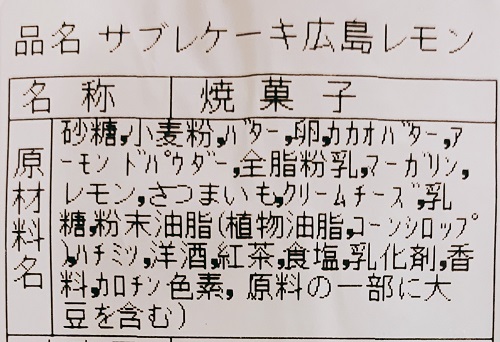 品名 サブレケーキ広島レモン
名称 焼菓子
原材料名
砂糖,小麦粉,ﾊﾞﾀｰ,卵,ｶｶｵﾊﾞﾀｰ,ｱ
ｰﾓﾝﾄﾞﾊﾟｳﾀﾞｰ,全脂粉乳,ﾏｰｶﾞﾘﾝ,
レモン,さつまいも,ｸﾘｰﾑﾁｰｽﾞ,乳
糖,粉末油脂(植物油脂,ｺｰﾝｼﾛｯﾌﾟ
),ﾊﾁﾐﾂ,洋酒,紅茶,食塩,乳化剤,香
料,ｶﾛﾁﾝ色素, 原料の一部に大
豆を含む)